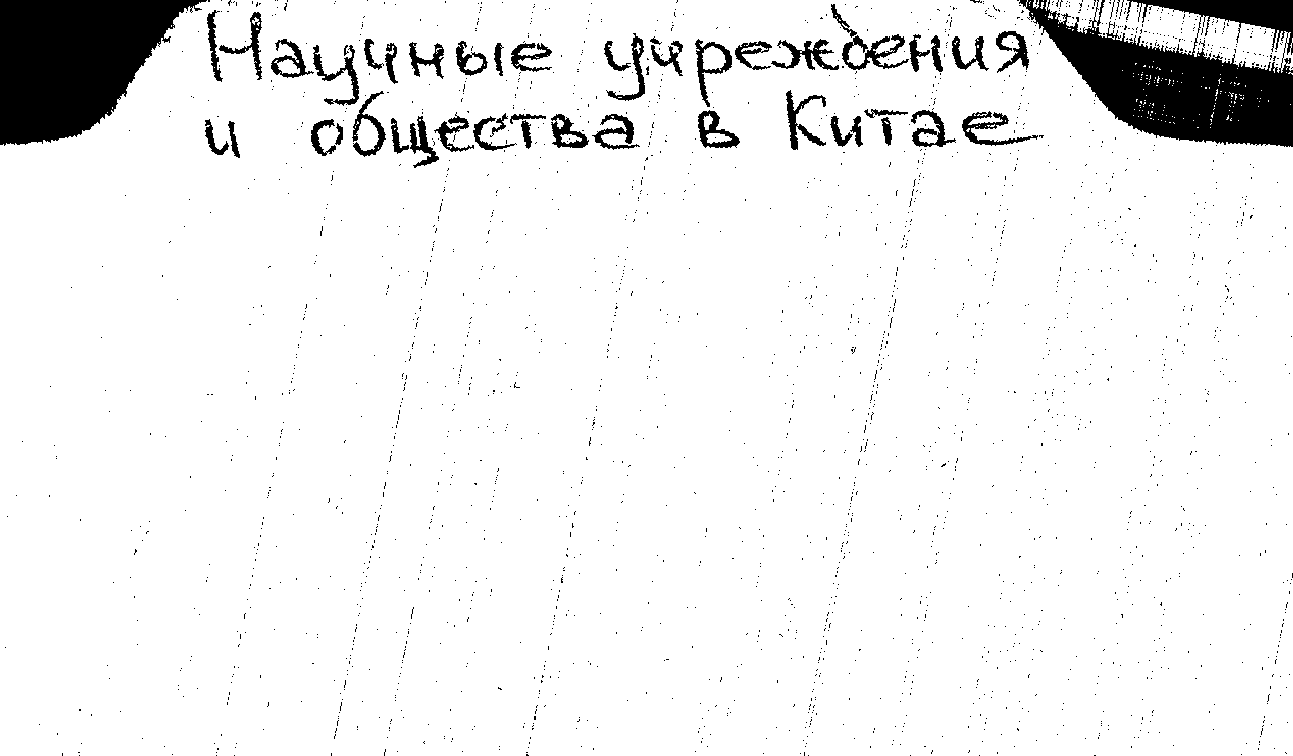 Научные учреждения
и общества в Китае